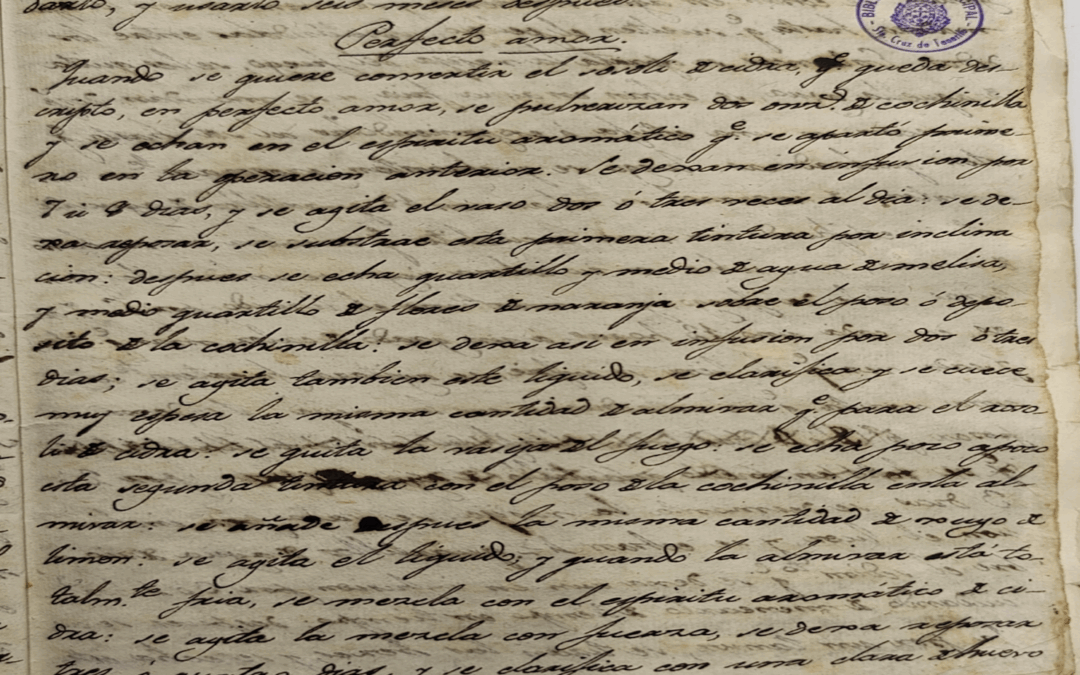 darlo, y usarlo seis meses despues.
Perfecto amor.
Quando se quiere convertir el rosoli de cidra, q.e queda des-
cripto, en perfecto amor, se pulverizan dos onz.s de cochinilla
y se echan en el espiritu aromático q.e se apartó prime-
ro en la operacion anterior. Se dexan en infusion por
7 ú 8 dias, y se agita el vaso dos ó tres veces al dia: se de-
xa reposar, se substrae esta primera tintura por inclina
cion: despues se echa quartillo y medio de agua de melisa,
y medio quartillo de flores de naranja sobre el poso ó depo-
sito de la cochinilla: se dexa asi en infusion por dos ó tres
dias; se agita tambien este liquido, se clarifica y se cuece
muy espesa la misma cantidad de almivar q.e para el roso
li de cidra: se quita la vasija del fuego: se echa poco apoco
esta segunda tintura con el poso dela cochinilla enla al-
mivar: se añade despues la misma cantidad de zugo de
limon: se agita el liquido; y quando la almivar está to-
talm.te fria, se mezcla con el espiritu aromático de ci-
dra: se agita la mezcla con fuerza, se dexa reposar
tres ó quatro dias, y se clarifica con una clara dehuevo
Sta. Cruz de Tenerife